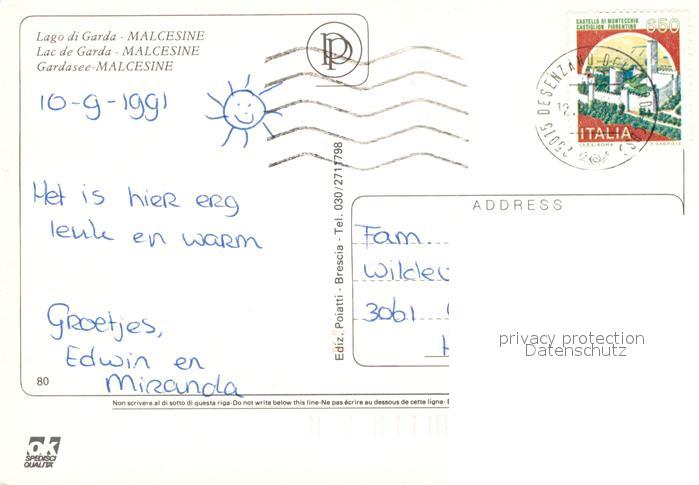 Lago di Garda - MALCESINE
Lac de Garda - MALCESINE
Gardasee-MALCESINE
10-9-1991
Het is hier erg
leuk en warm
Groetjes,
Edwin en
Miranda
80
Ediz. Poiatti - Brescia - Tel. 030/2711798
CASTELLO DI MONTECCHIO
CASTIGLION FIORENTINO
650
ITALIA
I.P.Z.S. ROMA
25015 DESENZANO DEL
ADDRESS
Fam.
3061
privacy protection
Datenschutz
Non scrivere al di sotto di questa riga-Do not write below this line-Ne pas écrire au dessous de cette ligne-
ok
SPEDISCI
QUALITÀ